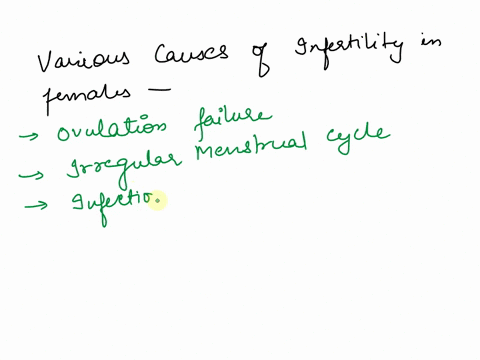 Various Causes of Infertility in
females —
→ Ovulation failure
→ Irregular Menstrual cycle
→ Infectio